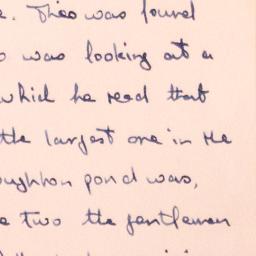 e. Theo was found
o was looking at a
which he read that
the largest one in the
oughton pond was,
e two the gentlemen